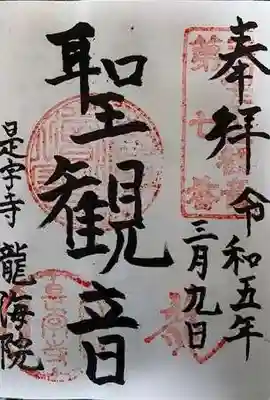 奉拝 令和五年
三月九日
聖観音
是字寺 龍海院